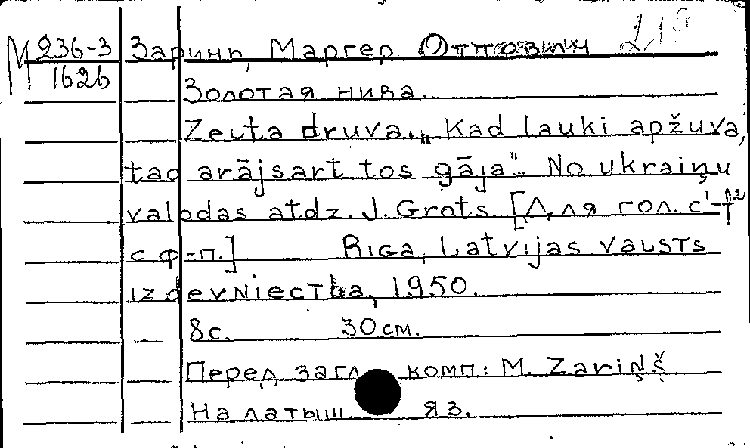 М 236-3 Заринь, Маргер Оттович
1626
Золотая нива.
Zelta druva. „Kad lauki apžuva,
tad arājs art tos gāja". No ukraiņu
valodas atdz. J. Grots. [Для гол.
с ф-п.] Riga, Latvijas valsts
izdevniecība, 1950.
8с. 30см.
Перед загл. комп: M. Zariņš
На латыш. яз.